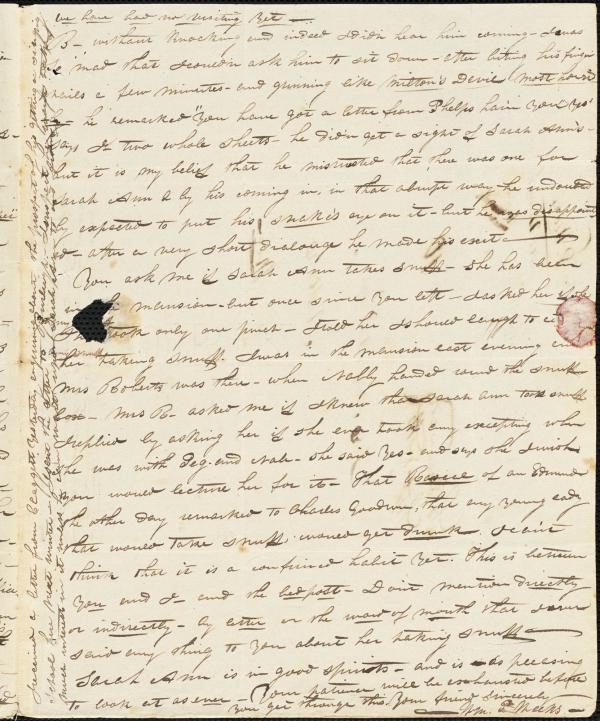 we have had no visiting yet —
B— without knocking and indeed I didn hear him coming— I was
so mad that I couldn ask him to sit down— after biting his finger
nails a few minutes— and grinning like Milton's Devil
he remarked "You have got a letter from Phelps hain You" "Yes"
says I— two whole sheets— he didn get a sight of Sarah Ann's—
but it is my belief that he mistrusted that there was one for
Sarah Ann & by his coming in, in that abrupt way— he undoubted
ly expected to put his snake's eye on it— but he was disappoint
ed— after a very short dialouge he made his exit —
You ask me if Sarah Ann takes snuff— She has been
in the mansion— but once since you left— I asked her if she
took only one pinch— I told her I should laugh to
her taking snuff. I was in the mansion last evening
Mrs Roberts was there— when Nabby handed round the snuff
box— Mrs R— asked me if I knew that Sarah Ann took snuff
I replied by asking her if she ever took any excepting when
she was with Peg. and Nab— she said Yes— and says she I wish
you would lecture her for it— That Rascal of an Edmund
the other day remarked to Charles Goodwin, that any young lady
that would take snuff would get drunk I can't
think that it is a confirmed habit yet. This is between
You and I— and the bedpost— Don't mention directly
or indirectly— by letter or the word of mouth that I ever
said any thing to you about her taking snuff—
Sarah Ann is in good spirits— and is as pleasing
to look at as ever— Your patience will be exhausted before
you get through this. Your friend sincerely
Wm. E. Weeks—
I received a letter from Claggett Yesterday